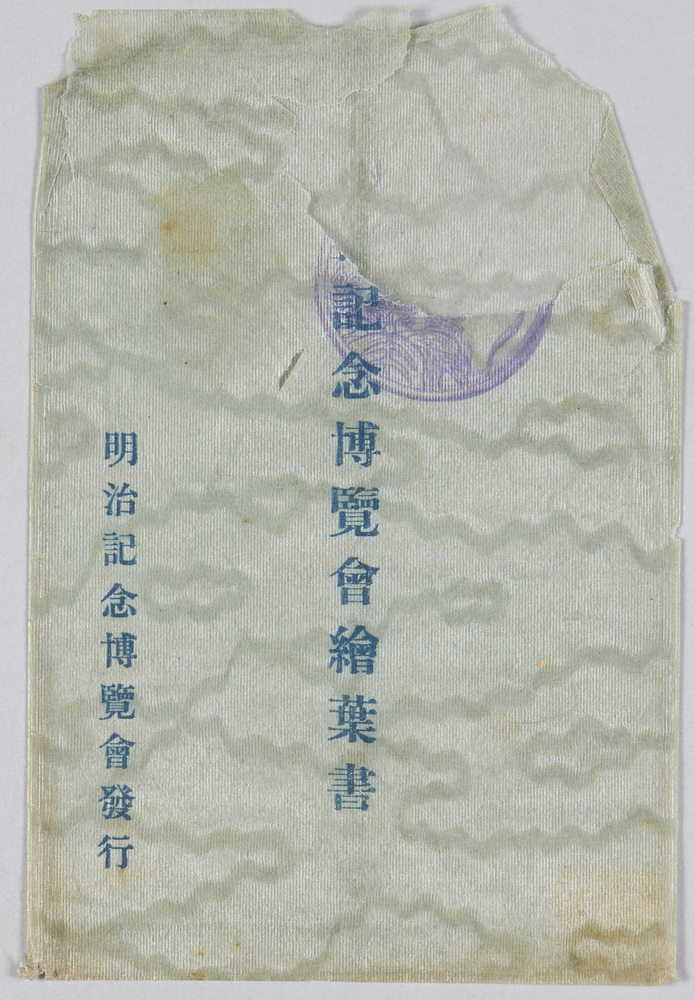 記念博覽會繪葉書
明治記念博覽會發行